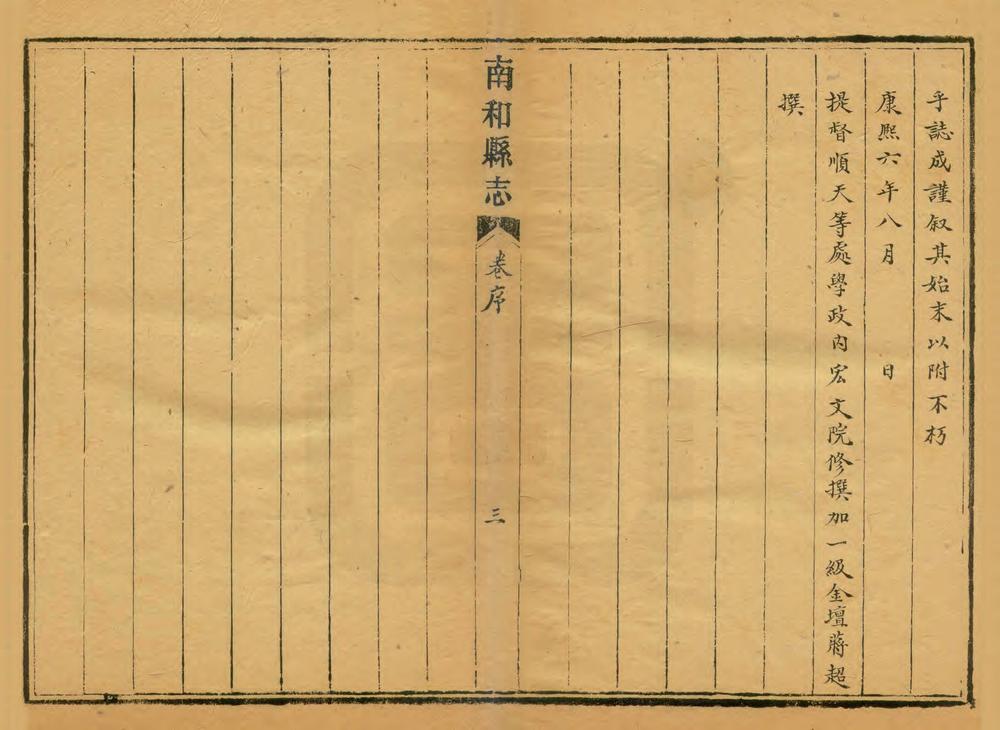 乎誌成謹叙其始末以附不朽
康熙六年八月　日
提督順天等處學政内宏文院修撰加一級金壇蔣超
撰
南和縣志
卷序
三